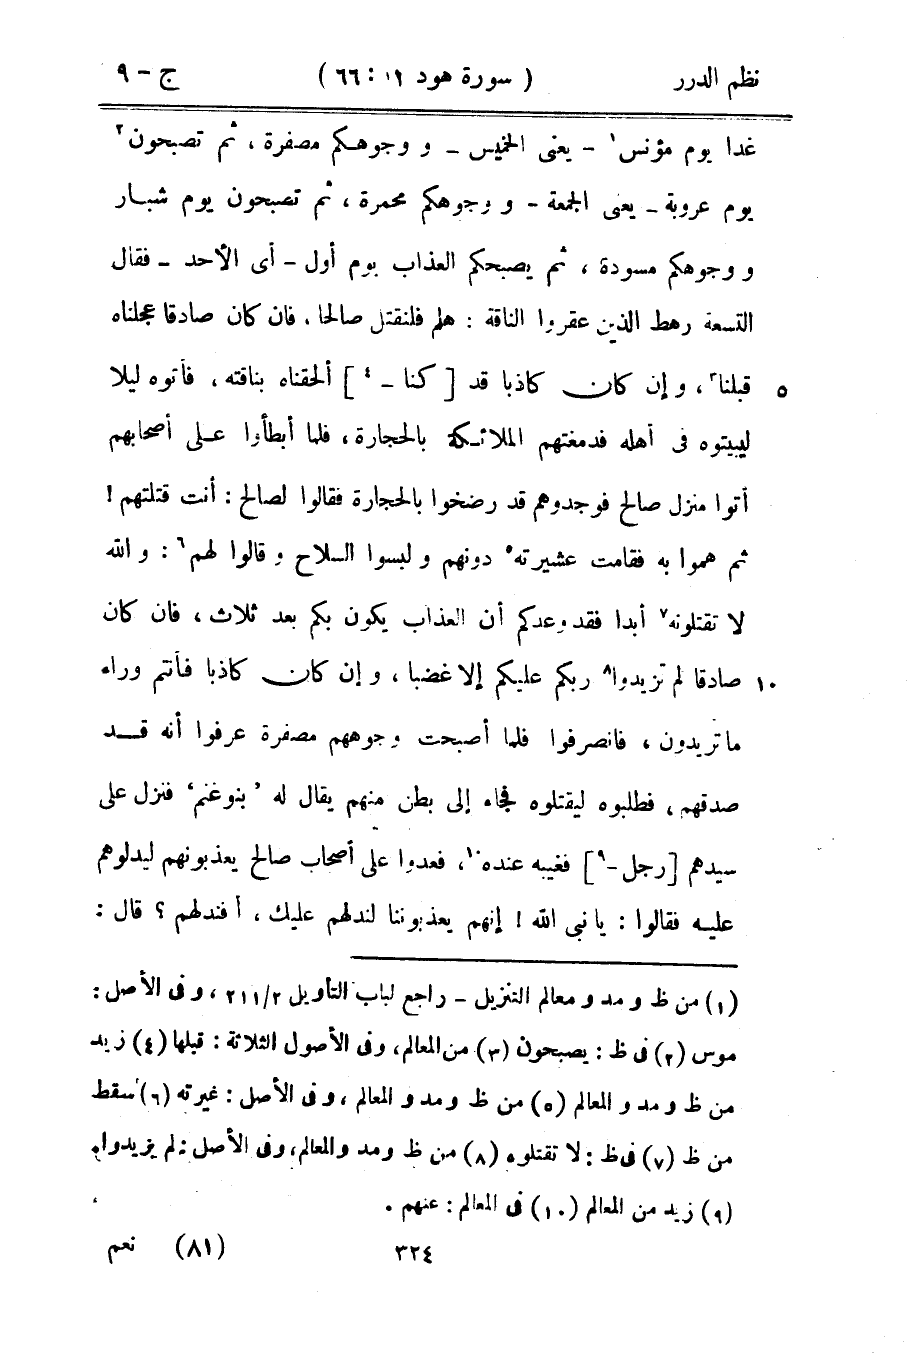 نظم الدرر ( سورة هود ١٩ : ٦٦ ) ج - ٩
غدا يوم مؤنس١ - يعنى الخميس - و وجوهكم مصفرة ، ثم تصبحون٢
يوم عروبة - يعنى الجمعة - و وجوهكم محمرة ، ثم تصبحون يوم شبار
و وجوهكم مسودة ، ثم يصبحكم العذاب يوم أول - أى الأحد - فقال
التسعة رهط الذين عقروا الناقة : هلم فلنقتل صالحا ، فان كان صادقا عجلناه
٥ قبلنا٣ ، و إن كان كاذبا قد [ كنا -٤ ] ألحقناه بناقته ، فأتوه ليلا
ليبيتوه فى أهله فدمغتهم الملائكة بالحجارة ، فلما أبطأوا على أصحابهم
أتوا منزل صالح فوجدوهم قد رضخوا بالحجارة فقالوا لصالح : أنت قتلتهم !
ثم هموا به فقامت عشيرته٥ دونهم و لبسوا السلاح و قالوا لهم٦ : و الله
لا تقتلونه٧ أبدا فقد وعدكم أن العذاب يكون بكم بعد ثلاث ، فان كان
١٠ صادقا لم تزيدوا٨ ربكم عليكم إلا غضبا ، و إن كان كاذبا فأنتم وراء
ما تريدون ، فانصرفوا فلما أصبحت وجوههم مصفرة عرفوا أنه قد
صدقهم ، فطلبوه ليقتلوه فجاء إلى بطن منهم يقال له ' بنو غنم ' فنزل على
سيدهم [ رجل -٩ ] فغيبه عنده١٠ ، فعدوا على أصحاب صالح يعذبونهم ليدلوهم
عليه فقالوا : يا نبى الله ! إنهم يعذبوننا لندلهم عليك ، أ فندلهم ؟ قال :
(١) من ظ و مد و معالم التنزيل - راجع لباب التأويل ٢/٢١١ ، و فى الأصل :
موس (٢) فى ظ : يصبحون (٣) من المعالم ، وفى الأصول الثلاثة : قبلها (٤) زيد
من ظ و مد و المعالم (٥) من ظ و مد و المعالم ، و فى الأصل : غيرته (٦) سقط
من ظ (٧) فى ظ : لا تقتلوه (٨) من ظ ومد والمعالم ، وفى الأصل : لم يزيدوا .
(٩) زيد من المعالم (١٠) فى المعالم : عنهم .
٣٢٤ (٨١) نعم